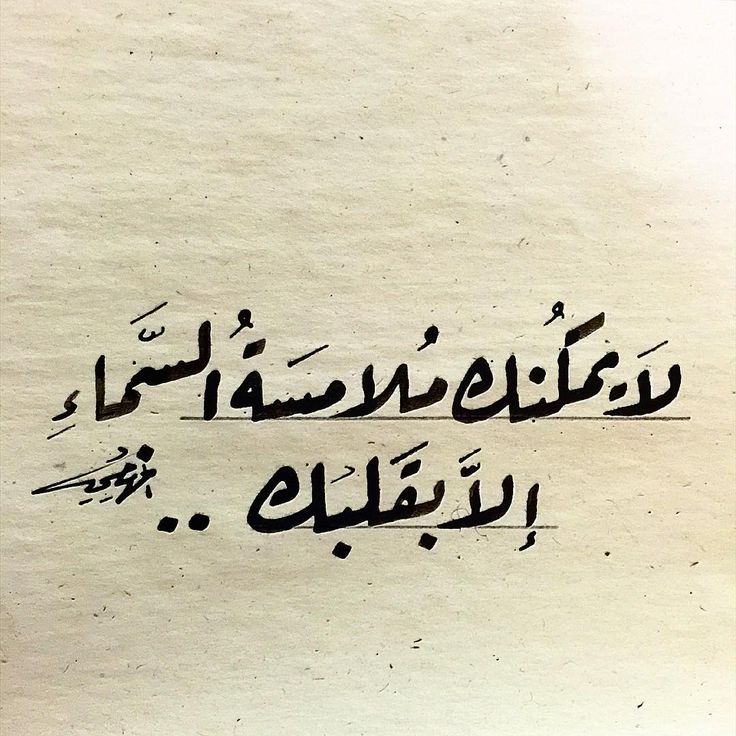 لَا يمكُنك مُلامسَةُ السَّماءِ
إلاَّ بقَلبك ..